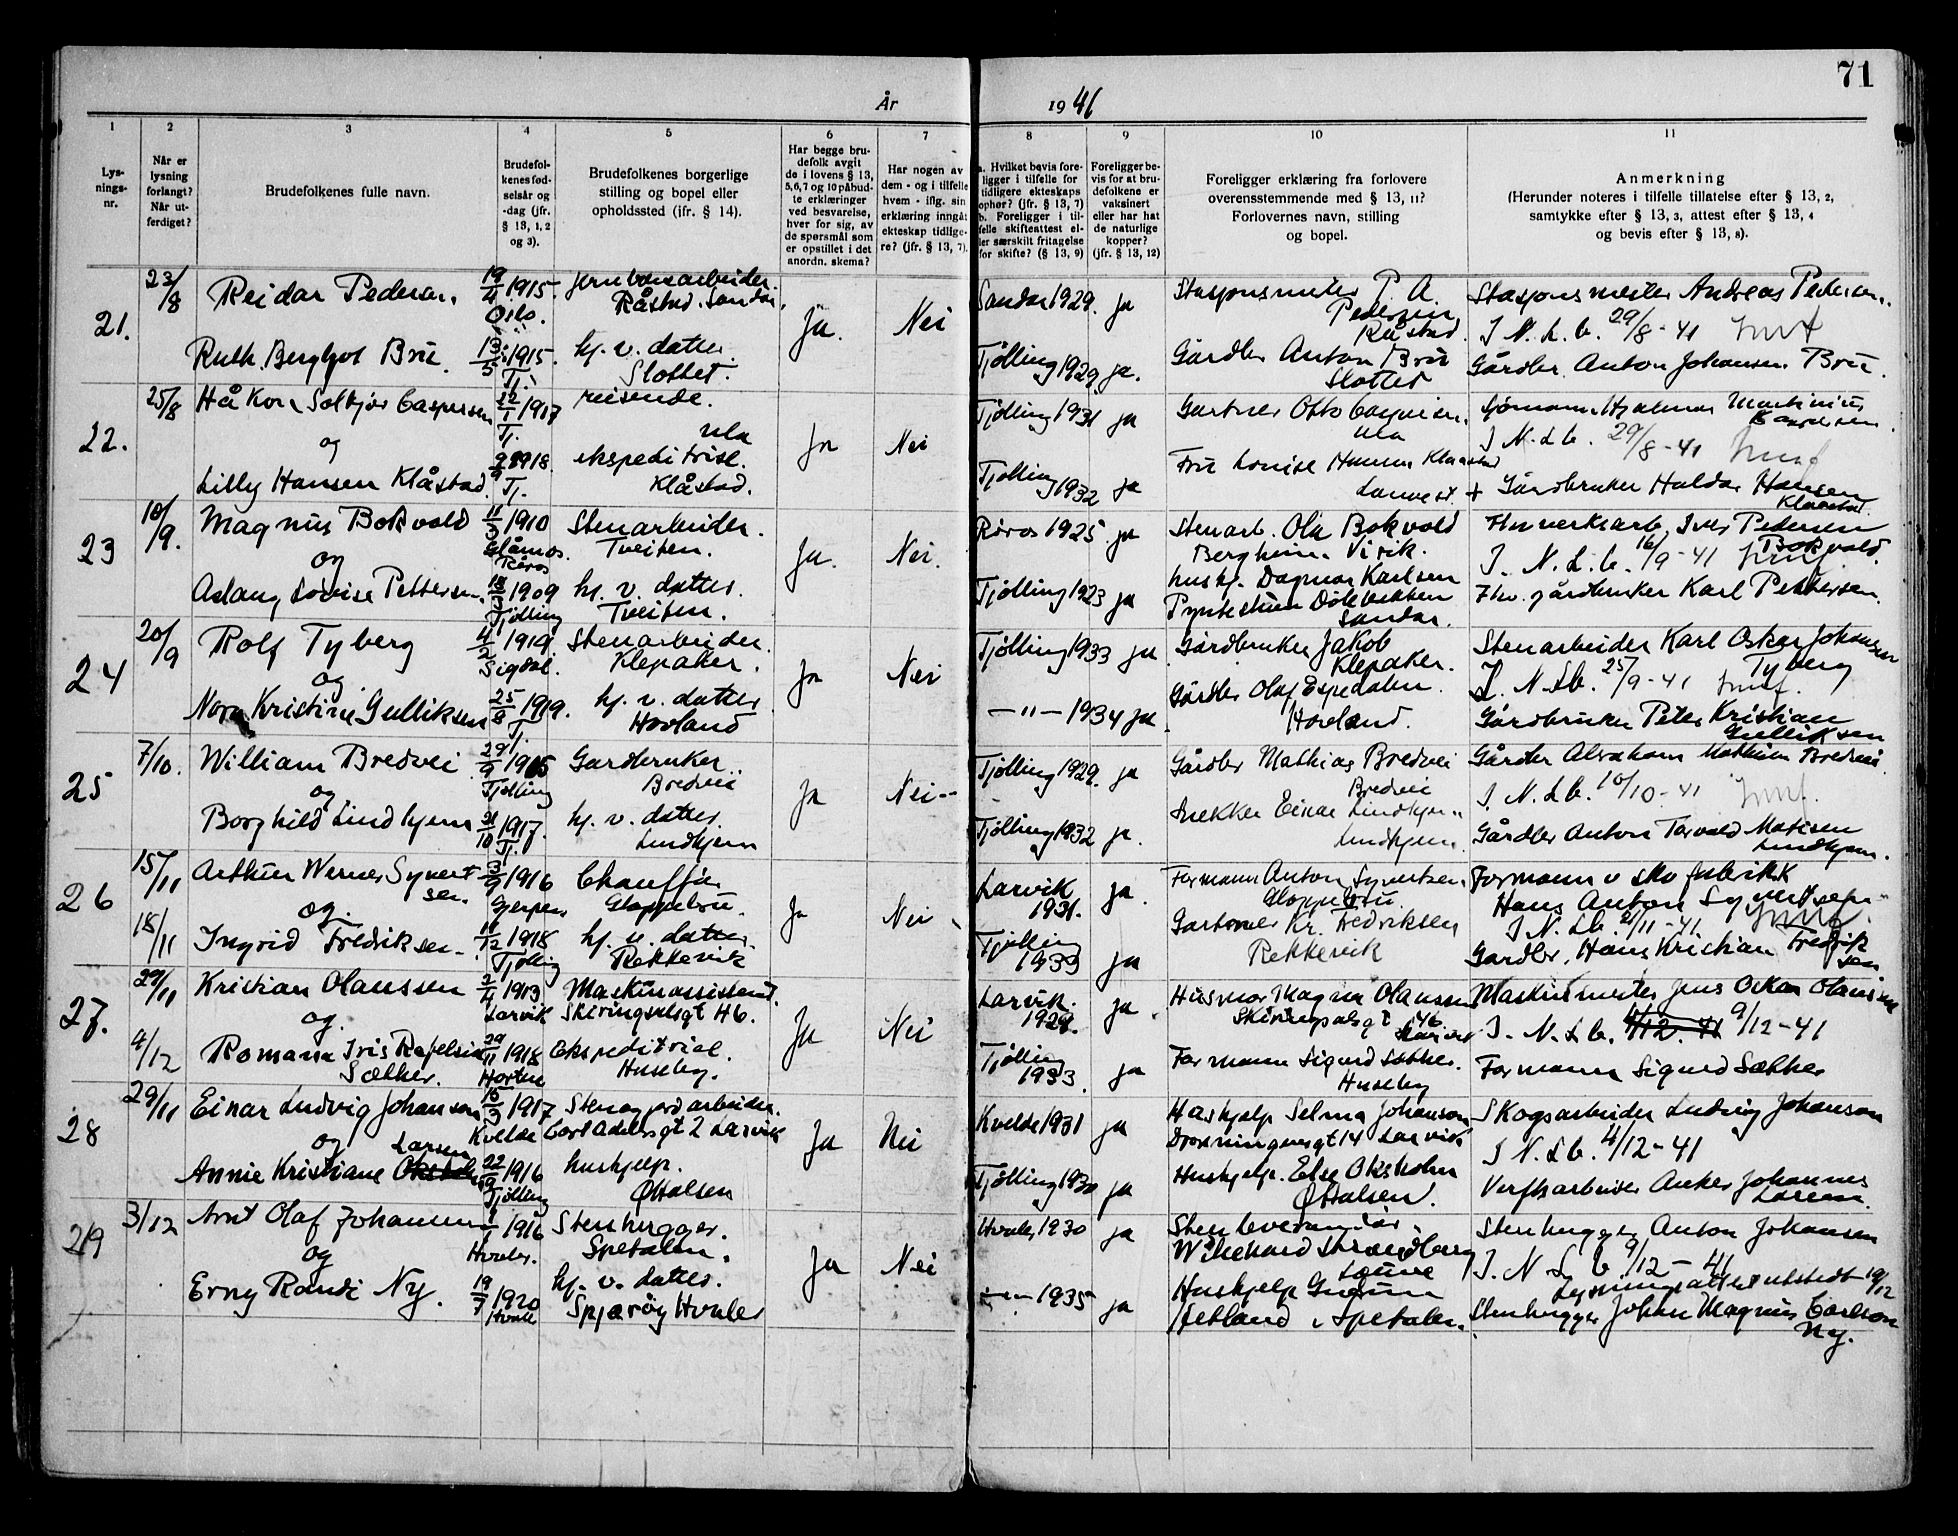 71
År 1941
1
2
3
4
5
6
7
8
9
10
11
Lys-
nings-
nr.
Når er
lysning
forlangt?
Når ut-
ferdiget?
Brudefolkenes fulle navn.
Brudefol-
kenes fød-
selsår og
-dag (jfr.
§ 13, 1, 2
og 3).
Brudefolkenes borgerlige
stilling og bopel eller
opholdssted (ifr. § 14).
Har begge bru-
defolk avgit
de i lovens § 13,
5, 6, 7 og 10 påbud-
te erklæringer
ved besvarelse,
hver for sig, av
de spørsmål som
er opstillet i det
anordn. skema?
Har nogen av
dem - og i tilfelle
hvem - iflg. sin
erklæring inngåt
ekteskap tidlige-
re? (jfr. § 13, 7).
a. Hvilket bevis fore-
ligger i tilfelle for
tidligere ekteskaps
ophør? (jfr. § 13, 7)
b. Foreligger i til-
felle skifteattest el-
ler særskilt fritagelse
for skifte? (§ 13, 9)
Foreligger be-
vis for at bru-
defolkene er
vaksinert
eller har hat
de naturlige
kopper?
(jfr. § 13, 12)
Foreligger erklæring fra forlovere
overensstemmende med § 13, 11?
Forlovernes navn, stilling
og bopel.
Anmerkning
(Herunder noteres i tilfelle tillatelse efter § 13, 2,
samtykke efter § 13, 3, attest efter § 13, 4
og bevis efter § 13, 8).
21.
23/8
Reidar Pedersen.
19/4 1915.
Oslo.
Jernbanearbeider.
Råstad. Sandar.
Ja.
Nei
Sandar 1929. ja
Stasjonsmester P. A.
Pedersen
Råstad.
Stasjonsmester Andreas Pedersen.
I N. L. b. 29/8 - 41
Ruth Bergljot Brue
13/5 1915.
Tj.
hj. v. datter.
Slottet.
Tjølling 1929 ja.
Gårdbr Anton Brue
Slottet
Gårdbr. Anton Johansen Brue.
22.
25/8
Håkon Solbjør Caspersen
22/1 1917
Tj.
reisende.
Ula
Ja
Nei
Tjølling 1931 ja
Gartner Otto Caspersen.
Ula
Sjømann Hjalmar Martinius
Caspersen
I N. L b. 29/8 - 41
og
Lilly Hansen Klåstad
1918.
Tj.
ekspeditrise.
Klåstad.
Tjølling 1932 ja
Fru Lovise Hansen Klaastad
+ Gårdbruker Haldor Hansen
Klaastad.
23
10/9.
Magnus Bokvold
11/3 1910
Glåmos.
Røros
Stenarbeider.
Tveiten.
Ja.
Nei.
Røros 1925. ja
Stenarb. Ola Bokvold
Bergheim. Virik.
Fhv verksarb. Iver Pedersen
Bokvold.
I. N. L. b. 16/9 - 41
og
Aslaug Lovise Pettersen.
1909
Tjølling
hj. v. datter.
Tveiten.
Tjølling 1923 ja
hushj. Dagmar Karlsen
Sandar.
Fhv. gårdbruker Karl Pettersen.
24
20/9
Rolf Tyberg
1919
Sigdal.
Stenarbeider
Klepaker.
Ja
Nei
Tjølling 1933 ja
Gårdbruker Jakob
Klepaker.
Stenarbeider Karl Oskar Johansen
Tyberg
I. N. Lb. 25/9 - 41
og
Nora Kristine Gulliksen
25/8 1919.
Tj.
hj. v. datter
Hovland
— " — 1934 ja
Gårdbr Olaf Espedalen.
Hovland.
Gårdbruker Peter Kristian
Gulliksen
25
7/10.
William Bredvei
29/9 1905
Tjølling
Gardbruker.
Bredvei
Ja
Nei
Tjølling 1929. ja
Gårdbr Mathias Bredvei
Bredvei
Gårdbr Abraham Mathias Bredvei
I. N. L b. 10/10 - 41
og
Borghild Lindhjem
21/10 1917.
Tj.
hj. v. datter.
Lindhjem
Tjølling 1932 ja.
Snekker Einar Lindhjem
Lindhjem
Gårdbr Anton Torvald Matisen
Lindhjem.
26
15/11
18/11
Arthur Werner Syvert-
sen.
3/9 1916
Gjerpen
Chauffør
Gloppebru.
Ja
Nei
Larvik
1931. ja.
Formann Anton Syvertsen.
Gloppebru.
Formann v skofabrikk
Hans Anton Syvertsen
I N. Lb. 21/11 - 41.
og.
Ingrid Fredriksen.
11/12 1918
Tjølling
hj. v. datter.
Rekkevik
Tjølling
1933 ja
Gartner Kr. Fredriksen
Rekkevik
Gardbr. Hans Kristian Fredrik
sen
27.
29/11
4/12
Kristian Olaussen
2/4 1913
Larvik
Maskinassistent.
Skiringsalsgt 46.
Ja
Nei
Larvik.
1929. ja.
Husmor Magna Olaussen
Skiringsalsgt 46.
Larvik
Maskinmester Jens Oskar Olaussen
I. N. L b. 4/12. 41 9/12 - 41
og.
Romana Iris Rafelsia
Sæther.
29/11 1918
Horten
Ekspeditrise.
Huseby.
Tjølling
1933. ja
Formann Sigurd Sæther.
Huseby
Formann Sigurd Sæther
28
29/11
Einar Ludvig Johansen
15/3 1917
Kvelde
Stenogjordarbeider.
Carl Adelersgt 2 Larvik
Ja
Nei
Kvelde 1931 ja
Hushjelp Selma Johansen
Dronningensgt 14 Larvik
Skogsarbeider Ludvig Johansen
I N. L b. 4/12 - 41
og Larsen
Annie Kristiane
22/9 1916
Tjølling
hushjelp.
Østalsen
Tjølling 1930 ja
Hushjelp. Else Oksholm
Østalsen.
Verftsarbeider Anker Johannes
Larsen.
29
3/12
Arnt Olaf Johansen
1916
Hvaler.
Stenhugger.
Spetalen.
Ja
Nei
Hvaler, 1930 ja
Stenleverandør.
Wilhelhard Strandberg
Stenhugger Anton Johansen
I. N L b 9/12 - 41
Lysningsattest utstedt 19/12
og
Erny Randi Ny.
19/7 1920
Hvaler
hj. v. datter.
Spjærøy Hvaler
— " — 1935 ja
Hushjelp Gudrun
Hetland, Spetalen.
Stenhugger Johan Magnus Carlson
Ny.